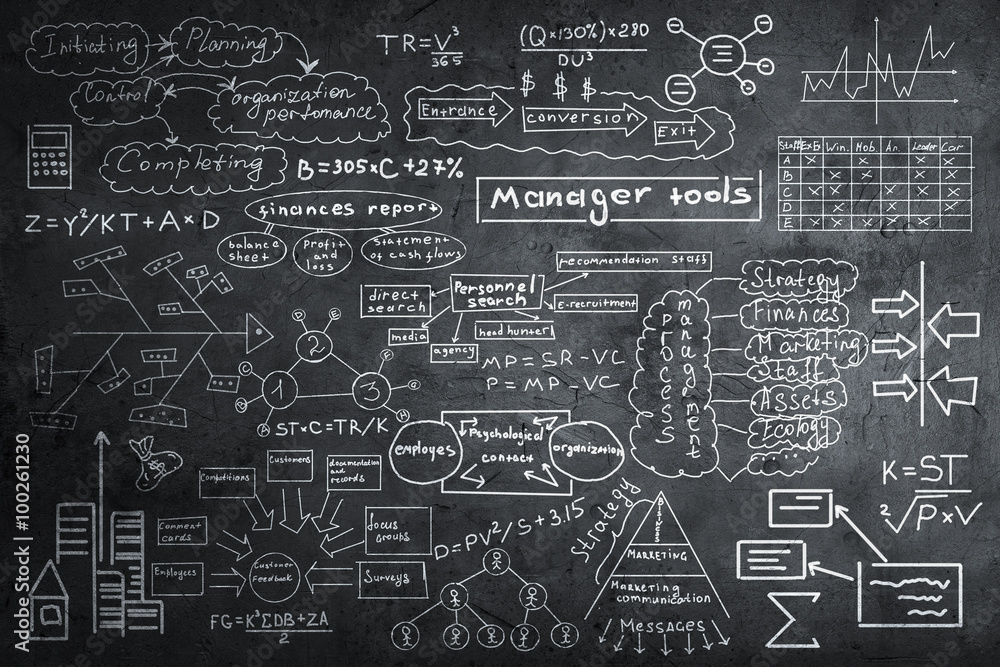 Initiating
Planning
Control
organization
performance
Completing
TR=V³
365
(Q×130%)×280
DU³
$ $ $
Entrance
conversion
Exit
B=305×C+27%
Manager tools
Staff
Win.
Mob.
An.
Leader
Car
A × × ×
B
C
D
E
Z=Y²/KT+A×D
finances report
balance
sheet
Profit
and
loss
statement
of cash flows
recommendation staff
Personnel
search
direct
search
E-recruitment
media
head hunter
agency
MP=SR-VC
P=MP-VC
Process
management
Strategy
Finances
Marketing
Staff
Assets
Ecology
1
2
3
D
E
C
B
A
F
G
H
ST×C=TR/K
employes
Psychological
contact
organization
K=ST
²√P×V
$
Competitions
Customers
documentation
and
records
Comment
cards
focus
groups
Employees
Customer
Feedback
Surveys
D=PV²/S+3.15
FG=K³ΣDB+ZA
2
Strategy
MARKETING
Marketing
communication
Messages
Σ
Adobe Stock | #100261230